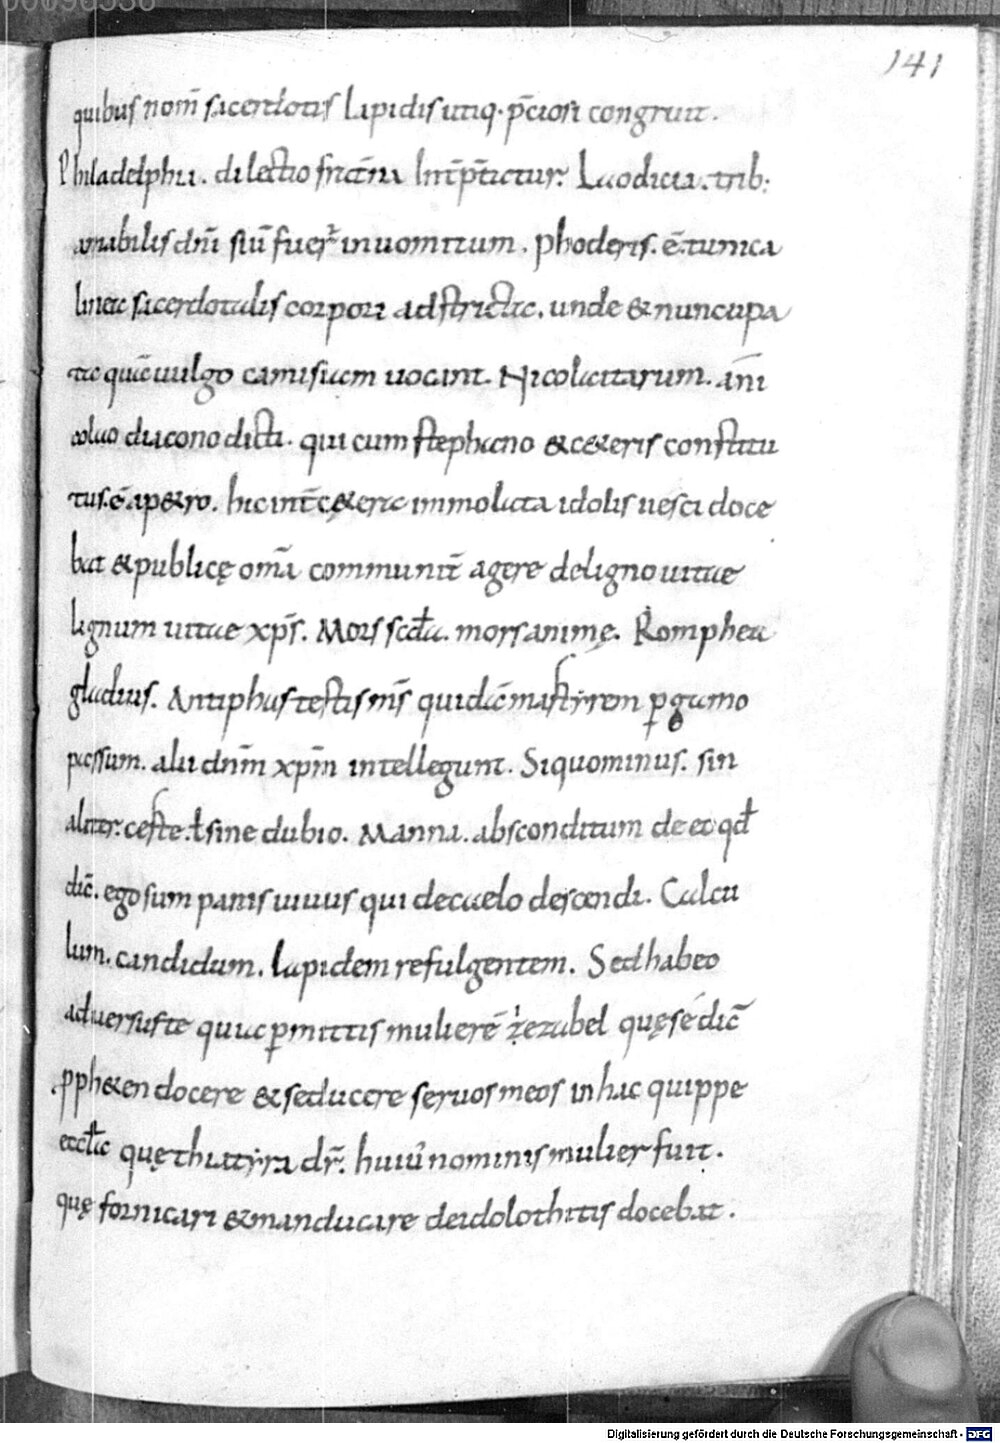 00096536
141
quibus nom̄ sacerdotis lapidis utiq· p̄ciosi congruit.
Philadelphia. dilectio fr̄na int̄p̄tatur. Laodicia. trib:
amabilis dn̄i siū fuer̄ inuomitum. phoderis. ē. tunica
linea sacerdotalis corpori adstricta. unde & nuncupa
ta quā uulgo camisiam uocant. Nicolaitarum. a ni
colao diacono dicti. qui cum stephano & c&eris constitu
tus. ē ap&ro. hic int̄ c&era immolata idolis uesci doce
bat & publicę om̄a communit̄ agere deligno uitae
lignum uitae xp̄s. Mors scđa. mors animę. Romphea
gladius. Antiphas testis m̄s quidā martyrem p̱gamo
passum. alii dn̄m xp̄m intellegunt. Siquominus. sin
aliter. certe. ł sine dubio. Manna. absconditum de eo qđ
dic̄. ego sum panis uiuus qui decaelo descendi. Calcu
lum. candidum. lapidem refulgentem. Sed habeo
aduersuste quia p̱mittis mulierē zezabel quę se dic̄
p̱ph&en docere & seducere seruos meos in hac quippe
eccła quę thiatyra dr̄. huiu᷒ nominis mulier fuit.
quę fornicari & manducare deidolothitis docebat.
Digitalisierung gefördert durch die Deutsche Forschungsgemeinschaft - DFG